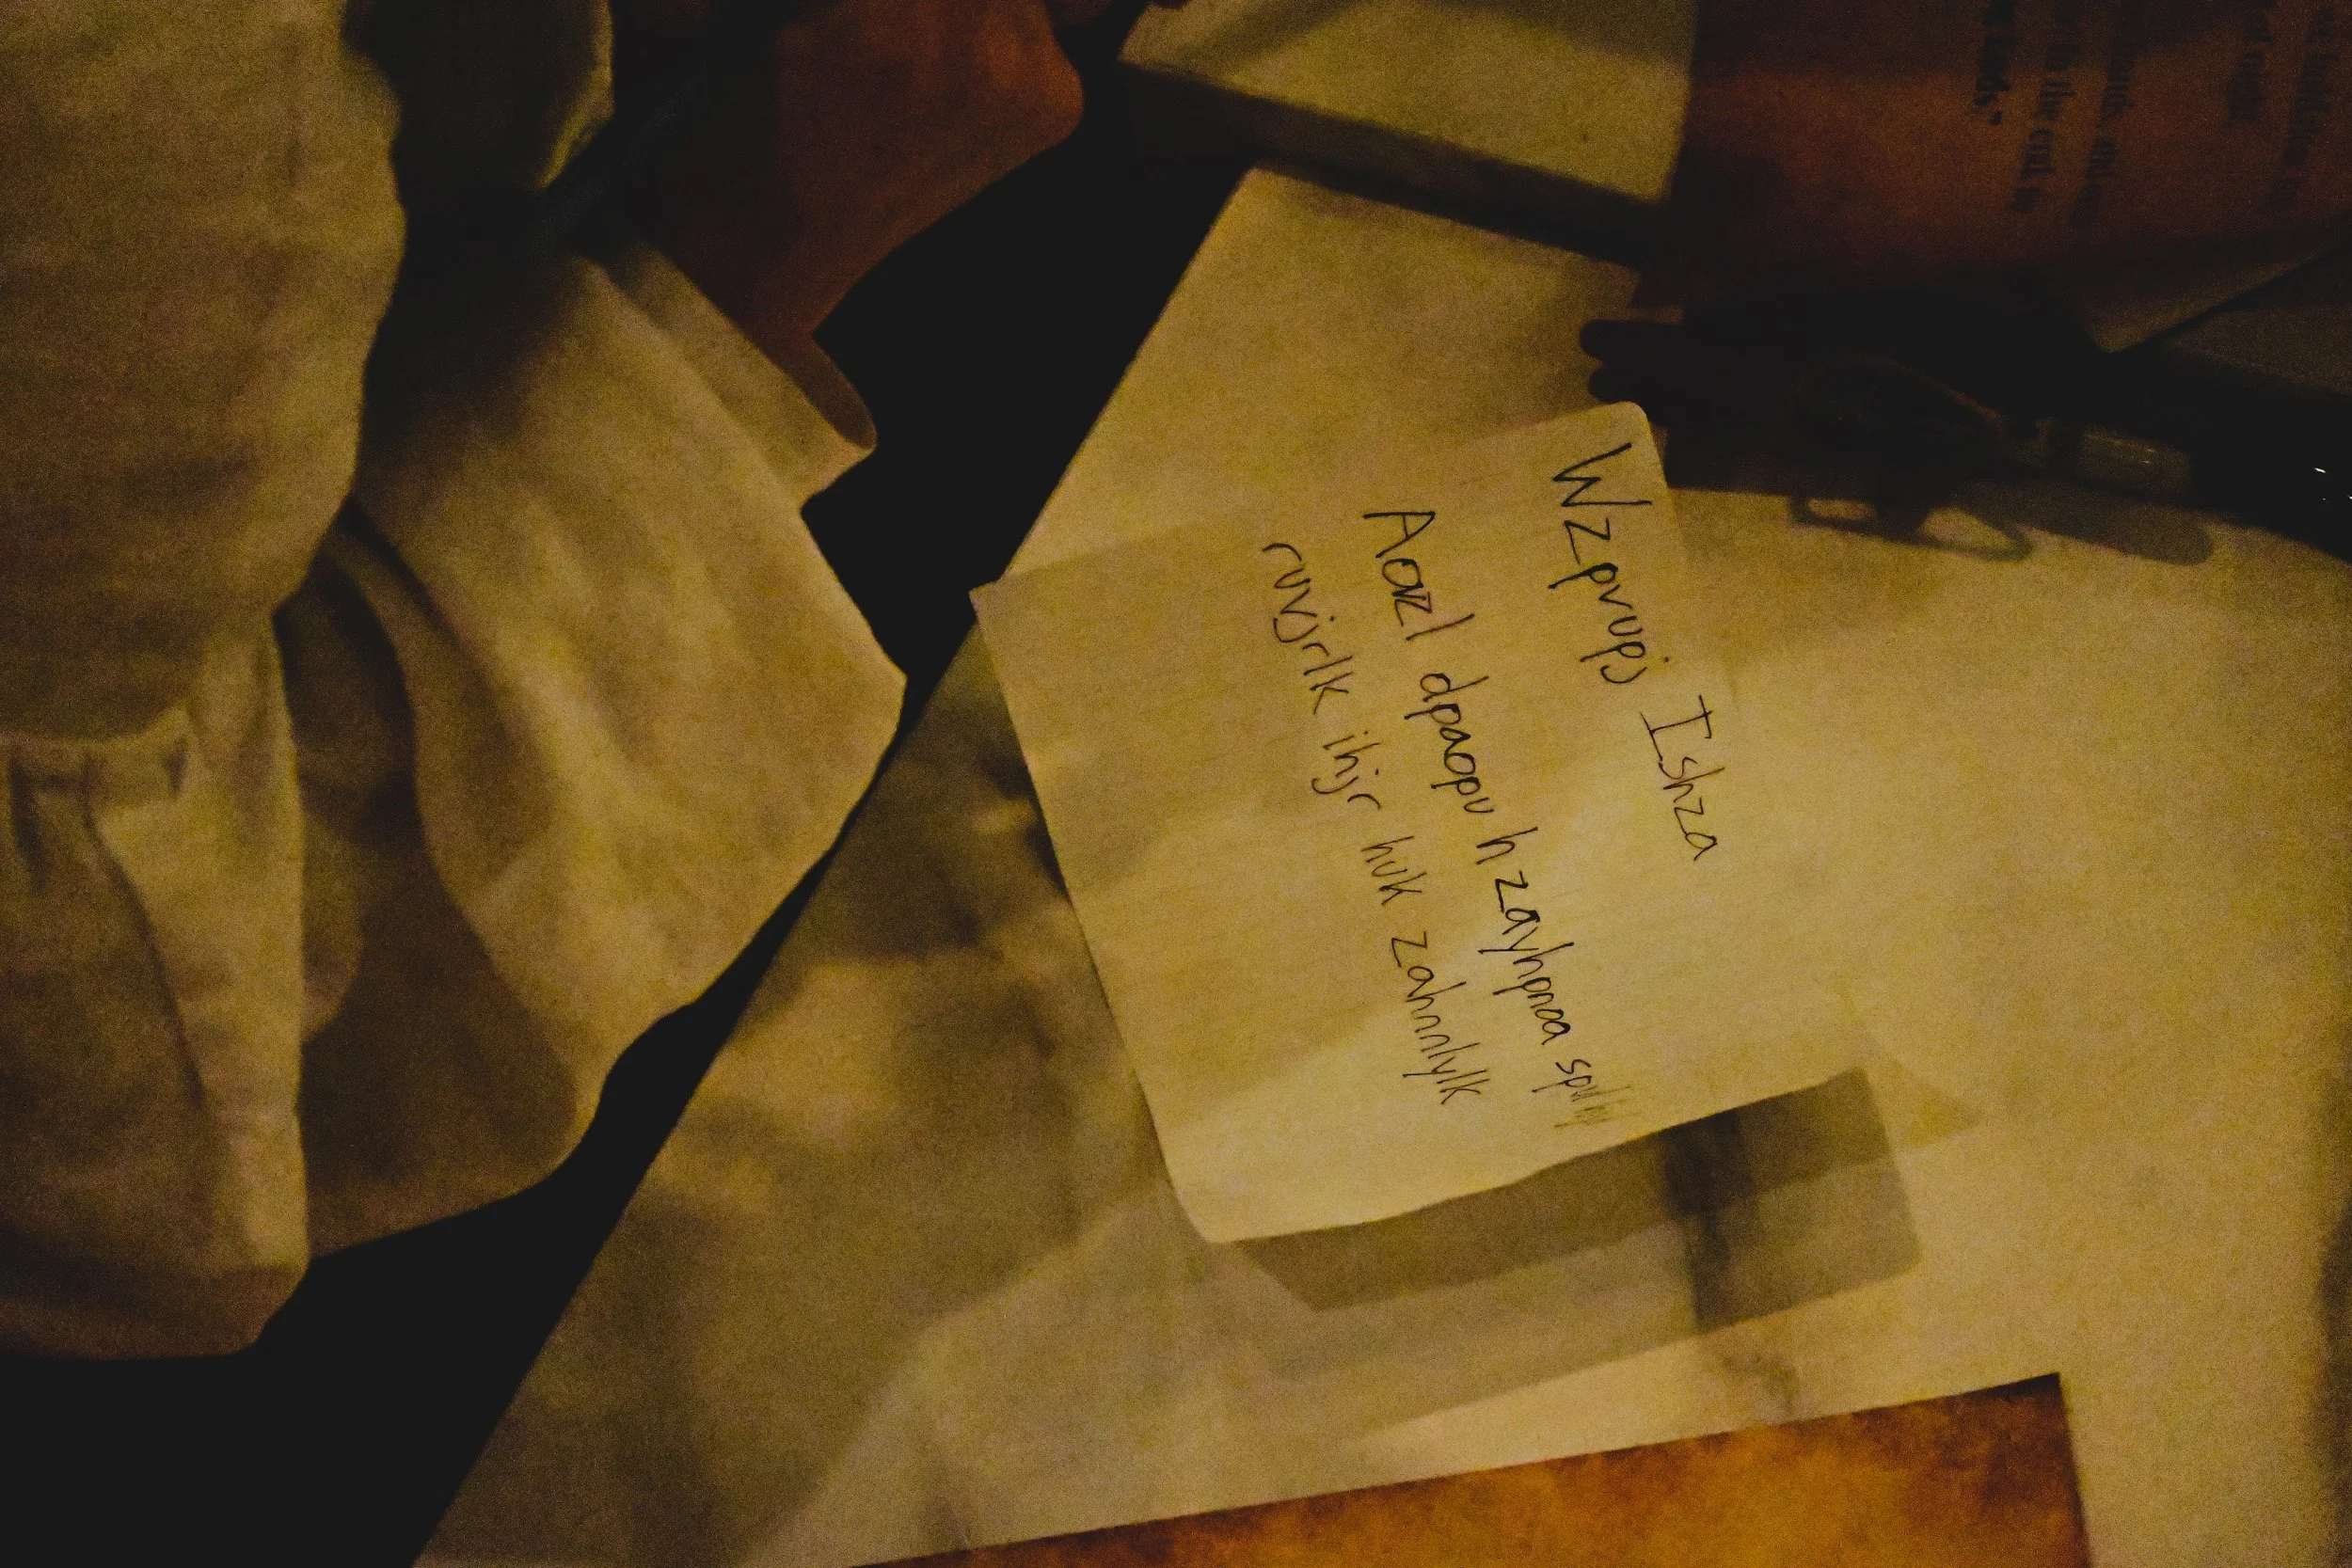 Wzpvupj Ishza
Aovzl dpaopu h zayhpnoa
ruvjrlk ihjr huk zahnnlylk